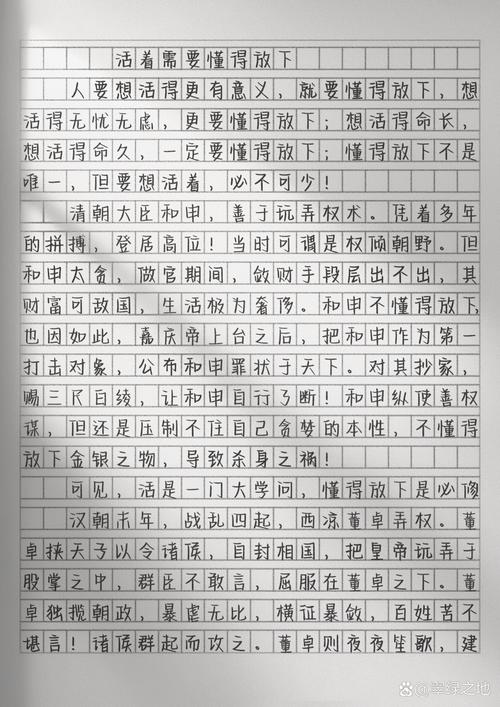 活着需要懂得放下
人要想活得更有意义，就要懂得放下，想
活得无忧无虑，更要懂得放下；想活得命长，
想活得命久，一定要懂得放下；懂得放下不是
唯一，但要想活着，必不可少！
清朝大臣和申，善于玩弄权术。凭着多年
的拼搏，登居高位！当时可谓是权倾朝野。但
和申太贪，做官期间，敛财手段层出不出，其
财富可敌国，生活极为奢侈。和申不懂得放下
也因如此，嘉庆帝上台之后，把和申作为第一
打击对象，公布和申罪状于天下。对其抄家，
赐三尺白绫，让和申自行了断！和申纵使善权
谋，但还是压制不住自己贪婪的本性，不懂得
放下金银之物，导致杀身之祸！
可见，活是一门大学问，懂得放下是必修
汉朝末年，战乱四起，西凉董卓弄权。董
卓挟天子以令诸侯，自封相国，把皇帝玩弄于
股掌之中，群臣不敢言，屈服在董卓之下。董
卓独揽朝政，暴虐无比，横征暴敛，百姓苦不
堪言！诸侯群起而攻之。董卓则夜夜笙歌，建
Baidu百科